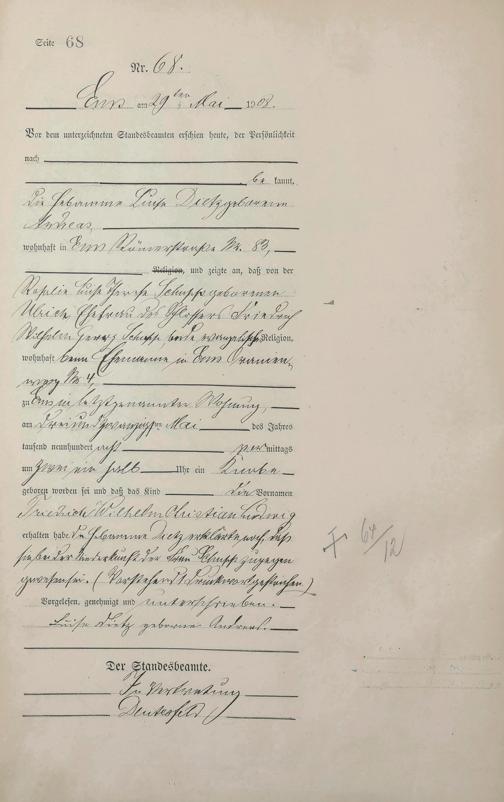 Seite 68
Nr. 68.
Ems am 29ten Mai 1908.
Vor dem unterzeichneten Standesbeamten erschien heute, der Persönlichkeit
nach
be kannt,
die Hebamme Luise Dietz geborenen
Andreas,
wohnhaft in Ems Römerstraße Nr. 83,
Religion, und zeigte an, daß von der
Rosalie Luise Therese geborenen
Ulrich Ehefrau des Schlossers Friedrich
Wilhelm beide evangelischer Religion,
wohnhaft beim Ehemanne in Ems Oranien-
weg Nr. 4,
zu Ems in letztgenannter Wohnung,
am dreiundzwanzigsten Mai des Jahres
tausend neunhundert acht vor mittags
um zwei ein halb Uhr ein Knabe
geboren worden sei und daß das Kind die Vornamen
Friedrich Wilhelm Christian Ludwig
erhalten habe. Die Hebamme Dietz erklärte noch, daß
sie bei der Niederkunft der Frau zugegen
gewesen sei. (Vorstehend 1 Druckwort gestrichen.)
Vorgelesen, genehmigt und unterschrieben.
Luise Dietz geborene Andreas.
Der Standesbeamte.
In Vertretung
64/12